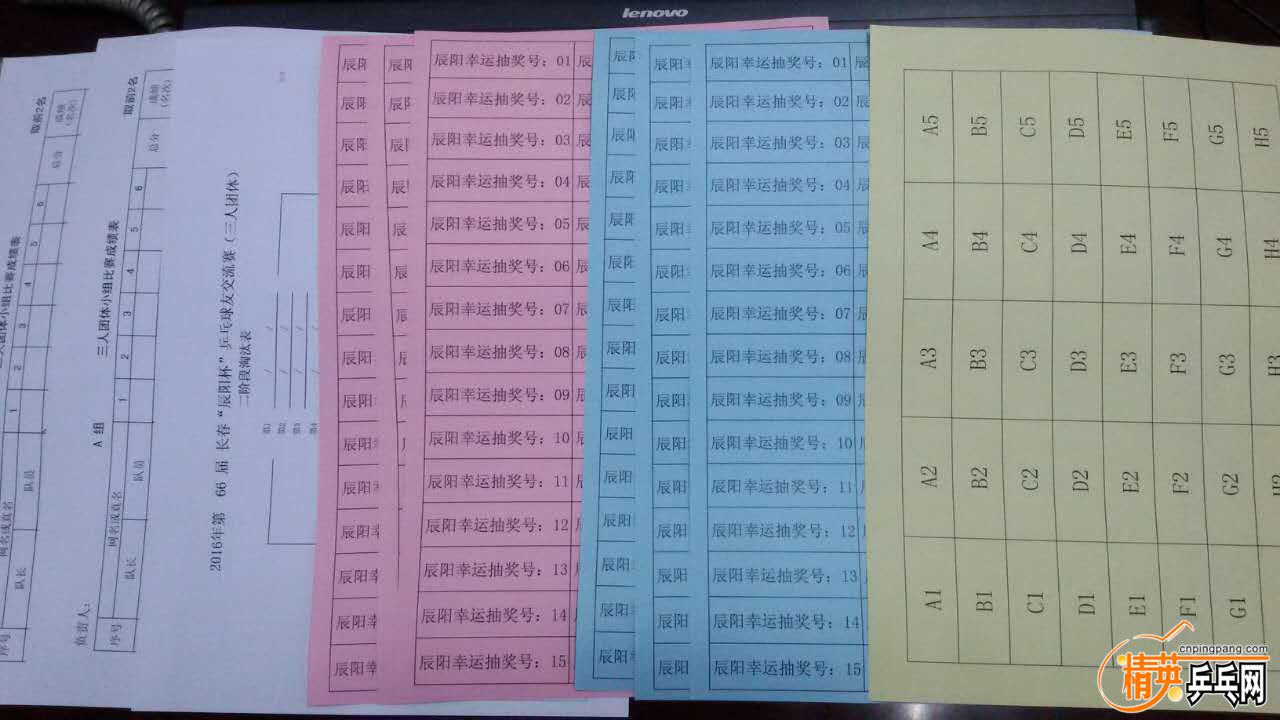 lenovo
取前2名
三人团体小组比赛成绩表
序号
网名或真名
1
2
3
4
5
6
总分
成绩
(名次)
队长
队员
取前2名
三人团体小组比赛成绩表
A 组
负责人:
序号
网名或真名
1
2
3
4
5
6
总分
成绩
(名次)
队长
队员
2016年第 66 届 长春“辰阳杯”乒乓球友交流赛(三人团体)
二阶段淘汰表
第1
第2
第3
第4
辰阳幸运抽奖号: 01
辰阳幸运抽奖号: 02
辰阳幸运抽奖号: 03
辰阳幸运抽奖号: 04
辰阳幸运抽奖号: 05
辰阳幸运抽奖号: 06
辰阳幸运抽奖号: 07
辰阳幸运抽奖号: 08
辰阳幸运抽奖号: 09
辰阳幸运抽奖号: 10
辰阳幸运抽奖号: 11
辰阳幸运抽奖号: 12
辰阳幸运抽奖号: 13
辰阳幸运抽奖号: 14
辰阳幸运抽奖号: 15
辰阳幸运抽奖号: 01
辰阳幸运抽奖号: 02
辰阳幸运抽奖号: 03
辰阳幸运抽奖号: 04
辰阳幸运抽奖号: 05
辰阳幸运抽奖号: 06
辰阳幸运抽奖号: 07
辰阳幸运抽奖号: 08
辰阳幸运抽奖号: 09
辰阳幸运抽奖号: 10
辰阳幸运抽奖号: 11
辰阳幸运抽奖号: 12
辰阳幸运抽奖号: 13
辰阳幸运抽奖号: 14
辰阳幸运抽奖号: 15
A1 A2 A3 A4 A5
B1 B2 B3 B4 B5
C1 C2 C3 C4 C5
D1 D2 D3 D4 D5
E1 E2 E3 E4 E5
F1 F2 F3 F4 F5
G1 G2 G3 G4 G5
H2 H3 H4 H5
cnpingpang.com
精英乒乓网